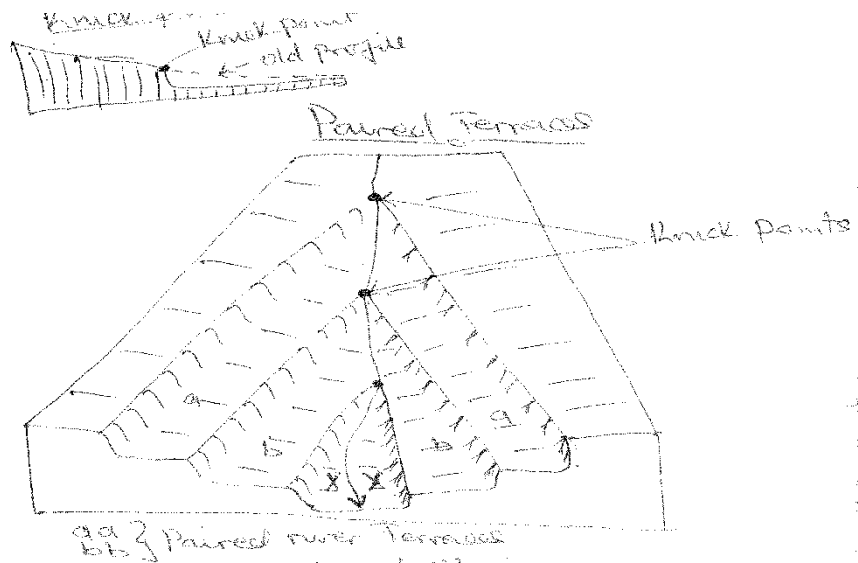 Knick
Knick point
old profile
Paired Terraces
Knick Points
a
a
b
b
X X
aa } Paired river Terraces
bb